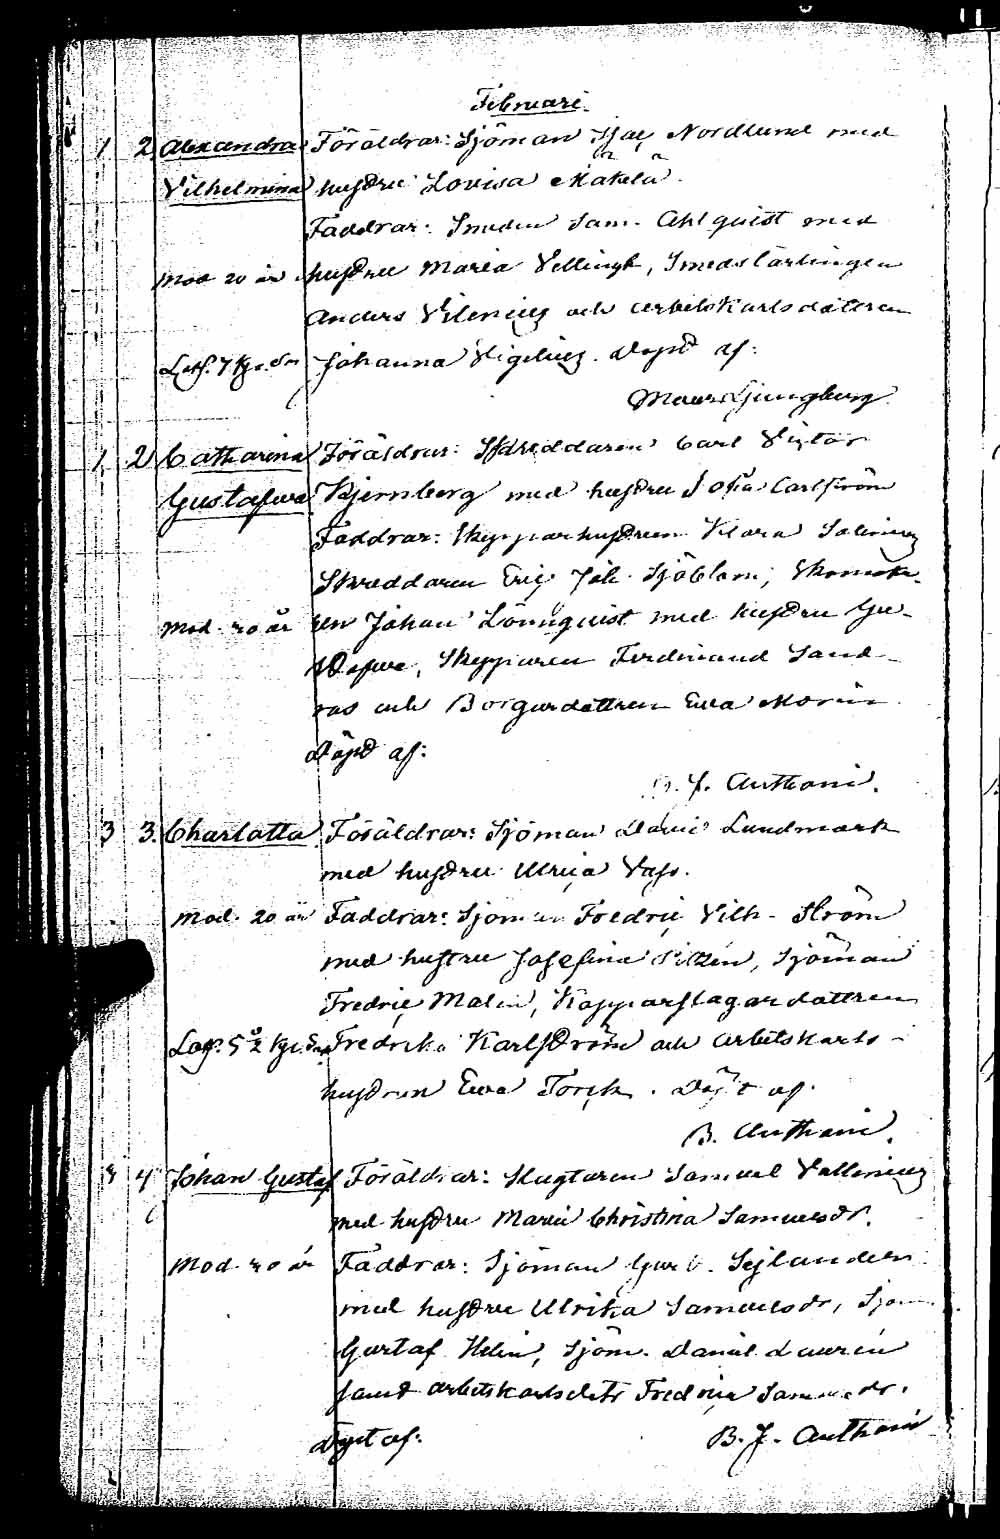 Februari.
1 2 Alexandra Föräldrar: Sjöman Isac Nordlund med
Vilhelmina hustru Lovisa Mäkelä.
Faddrar: Smeden Sam. Ahlquist med
Mod 20 år hustru Maria Vellingk, Smedslärlingen
Anders Vilenius och arbetskarlsdottren
Johanna Vigelius. Döpt af:
Maur. Ljungberg.
1, 2 Catharina Föräldrar: Skreddaren Carl Victor
Gustafwa Bjernberg med hustru Sofia Carlström
Faddrar: Skepparhustrun Klara Salenius
Skreddaren Eric Joh. Sjöblom, Skomaka-
Mod. 20 år ren Johan Lönnquist med hustru Gu-
stafwa, Skepparen Ferdinand Sand-
ras och Borgardottren Ewa Morin
Döpt af:
B. J. Anthoni.
3 3. Charlotta Föräldrar: Sjöman David Lundmark
med hustru Ulrica Vass.
Mod. 20 år Faddrar: Sjöman Fredric Vilh. Ström
med hustru Josefina, Sjöman
Fredric Malin, Kopparslagardottren
5 ½ Fredrika Karlström och arbetskarls-
hustrun Ewa Torck. Döpt af.
B. Anthoni.
3 4 Johan Gustaf Föräldrar: Slagtaren Samuel Vallenius
med hustru Maria Christina Samuelsdr.
Mod. 20 år Faddrar: Sjöman Sejlander
med hustru Ulrika Samuelsdr, Sjöm.
Gustaf Helin, Sjöm. Daniel Laurén
samt arbetskarlsdotr Fredrica Samuelsdr.
Döpt af: B. J. Anthoni